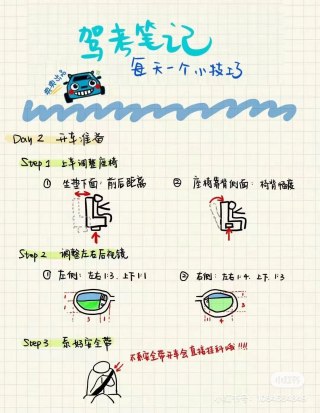 驾考笔记
每天一个小技巧
Day 2 开车准备
Step 1 上车调整座椅
① 坐垫下面：前后距离
② 座椅靠背侧面：椅背幅度
Step 2 调整左右后视镜
① 左侧：左右1:3. 上下1:1
② 右侧：左右1:4. 上下1:3
Step 3 系好安全带
不系安全带开车会直接挂科哦!!!!
小红书